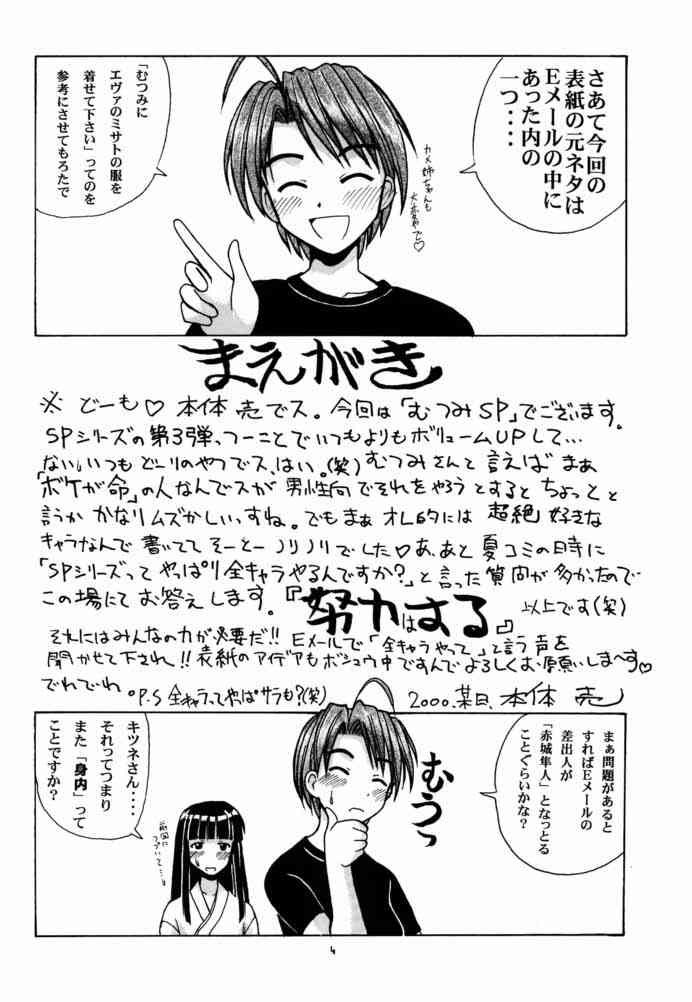 さあて今回の
表紙の元ネタは
Eメールの中に
あった内の
一つ・・・
「むつみに
エヴァのミサトの服を
着せて下さい」ってのを
参考にさせてもろたで
カメ姉ちゃんも
大変やで♡
まえがき
※ どーも♡ 本体 売でス。今回は「むつみSP」でございます。
SPシリーズの第3弾、つーことでいつもよりもボリュームUPして…
ない。いつもどーりのやつでス、はい。(笑) むつみさんと言えば まあ
「ボケが命」の人なんでスが 男性向でそれをやろうとすると ちょっとと
言うか かなりムズかしいっすね。でもまぁ オレ的には 超絶 好きな
キャラなんで 書いてて そーとー ノリノリでした♡ あ、あと 夏コミの時に
「SPシリーズって やっぱり全キャラやるんですか?」と言った質問が多かったので
この場にて お答えします。『努力はする』 以上です(笑)
それにはみんなの力が必要だ!! Eメールで「全キャラやって」と言う声を
聞かせて下され!! 表紙のアイデアもボシュウ中ですんでよろしくお願いしまーす♡
でわでわ。P.S 全キャラってやっぱサラも?(笑) 2000.某日、本体 売
まぁ問題があると
すればEメールの
差出人が
「赤城隼人」となっとる
ことぐらいかな?
むうっ
キツネさん・・・・
それってつまり
また「身内」って
ことですか?
前回に
つづいて…
4